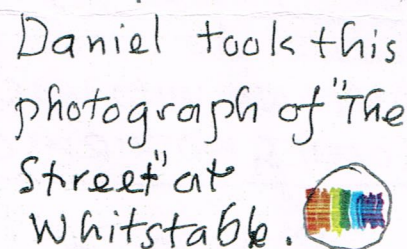 Daniel took this
photograph of "The
Street" at
Whitstable.